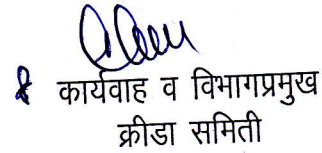 कार्यवाह व विभागप्रमुख
क्रीडा समिती